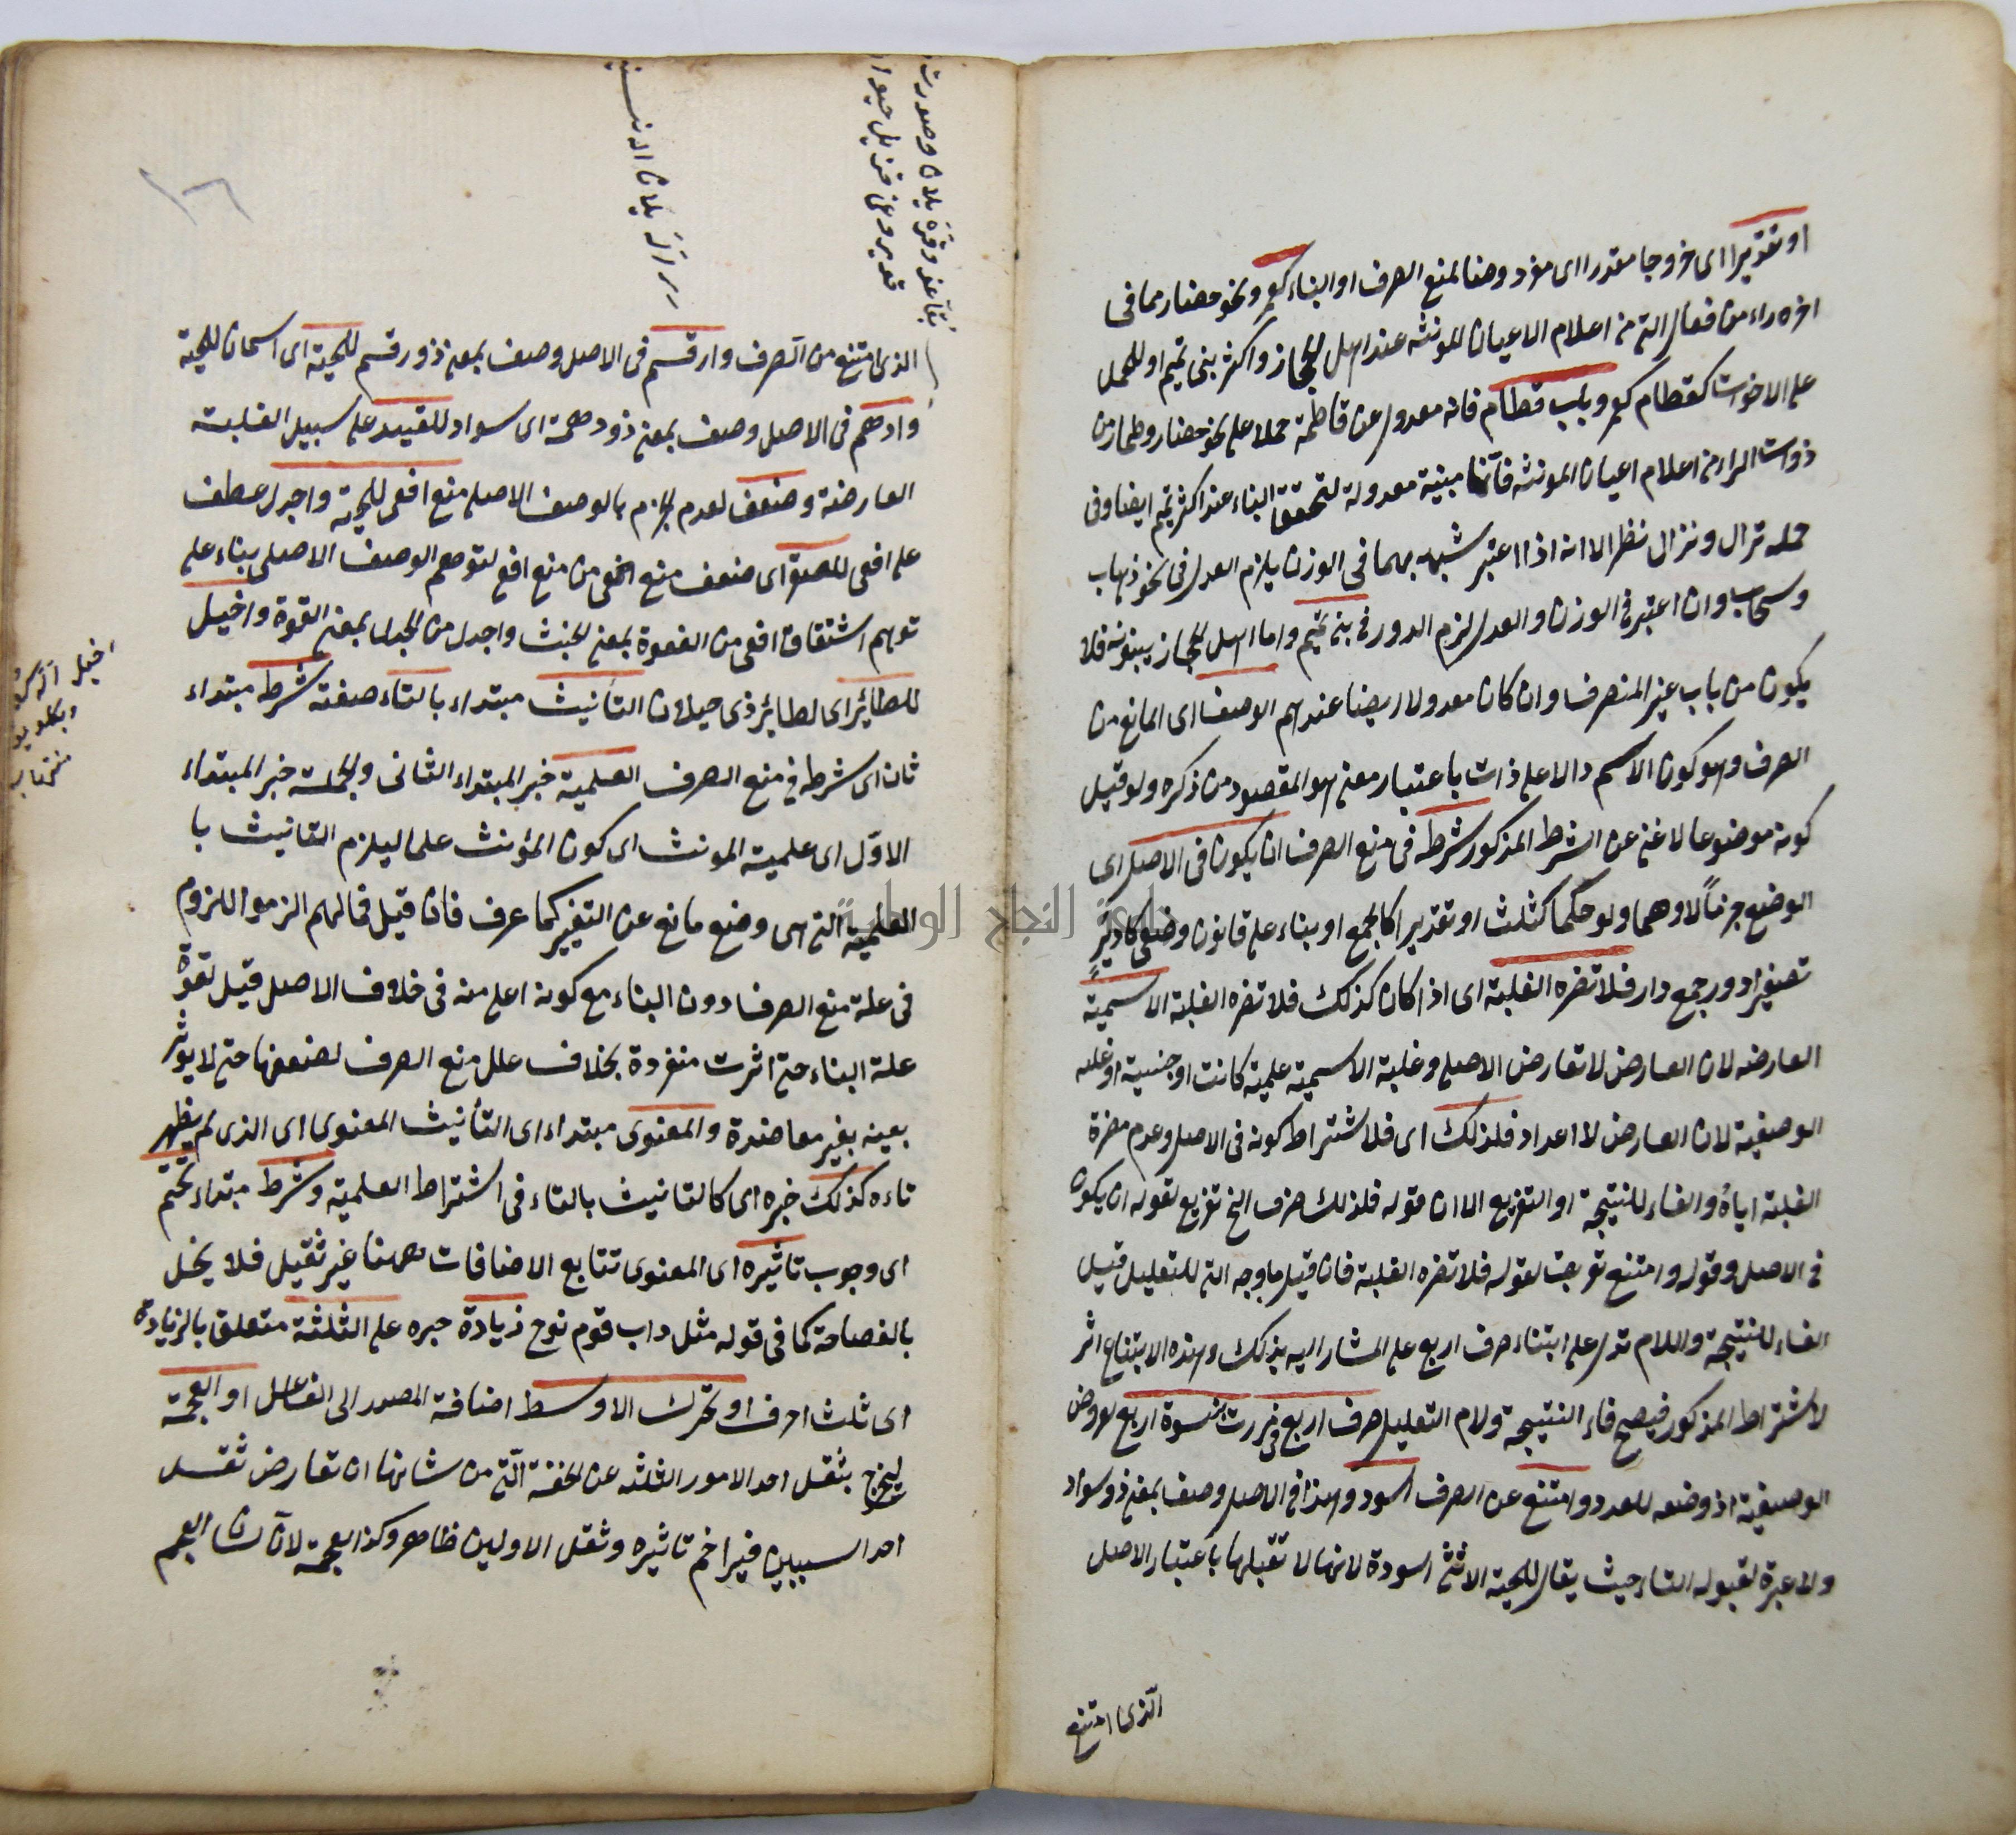 او تقديرا اى خروجا مقدرا اى مفروضا لمنع الصرف او البناء كعمر ونحو حضار مما فى
اخره راء من فعال التى من اعلام الاعيان المونثه عند اهل الحجاز واكثر بنى تميم او للحمل
على الاخوات كقطام كعمر وباب قطام فانه معدول عن قاطمة حملا على نحو حضار وطمار من
ذوات الراء من اعلام اعيان المونثه فانها مبنية معدولة لتحقق البناء عند اكثر تميم ايضا وفى
حمله تراك ونزال نظر الا انه اذا اعتبر شبهه بهما فى الوزن يلزم العدل فى نحو ذهاب
وسحاب وان اعتبر فى الوزن والعدل لزم الدور فى بنى تميم واما اهل الحجاز يبنونه فلا
يكون من باب غير المنصرف وان كان معدولا ايضا عندهم الوصف اى المانع من
الصرف وهو كون الاسم دالا على ذات باعتبار معنى هو المقصود من ذكره ولو قيل
كونه موضوعا لاغنى عن الشرط المذكور شرطه فى منع الصرف ان يكون فى الاصل اى
الوضع جزئياً لا وهما ولو حكما كثلث او تقديرا كالجمع او بناء على قانون وضعى كادير
تصغير ادور جمع دار فلا تضره الغلبة اى اذا كان كذلك فلا تضره الغلبة الاسمية
العارضه لان العارض لا تعارض الاصلى وغلبة الاسمية علمية كانت او جنسية او غلبه
الوصفية لان العارض لا اعداد فلذلك اى فلاشتراط كونه فى الاصل وعدم مضرة
الغلبة اياه والفاء للنتيجة او التفريع الا ان قوله فلذلك صرف الخ تفريع لقوله ان يكون
فى الاصل وقوله وامتنع تفريعت لقوله فلا تضره الغلبة فان قيل ما وجه التى للتعليل قيل
الفاء للنتيجة واللام تدل على ابتناء صرف اربع على المشار اليه بذلك وهذه الابتناع اثر
لاشتراط المذكور فيصح فاء النتيجة ولام التعليل صرف اربع فى مررت بنسوة اربع لعروض
الوصفية اذ وضعه للعدد وامتنع عن الصرف اسود وهذا فى الاصل وصف بمعنى ذو سواد
ولا عبرة لقبوله التاء حيث يقال للحية الانثى اسودة لانها لا تقبلها باعتبار الاصل
الذى امتنع
١٦
الذى امتنع من الصرف وارقم فى الاصل وصف بمعنى ذو رقم للحية اى اسمان للحية
وادهم فى الاصل وصف بمعنى ذو دهمة اى سواد للقيد على سبيل الغلبة
العارضة وضعف لعدم الجزم بالوصف الاصلى منع افعى للحية واجدل عطف
على افعى للصقر اى ضعف منع نحو من منع افعى لتوهم الوصف الاصلى بناء على
توهم اشتقاق افعى من الفعوة بمعنى الخبث واجدل من الجدل بمعنى القوة واخيل
للطائر اى لطائر ذى خيلان التأنيث مبتداء بالتاء صفته شرط مبتداء
ثان اى شرطه فى منع الصرف العلمية خبر المبتداء الثانى والجملة خبر المبتداء
الاول اى علمية المونث اى كون المؤنث علما ليلزم التانيث با
العلمية التى هى وضع مانع عن التغير كما عرف فان قيل فما لهم الزموا اللزوم
فى علة منع الصرف دون البناء مع كونه اعلى منه فى خلاف الاصل قيل لقوة
علة البناء حتى اثرت منفردة بخلاف علل منع الصرف لضعفها حتى لا يوثر
بعينه بغير معاضدة والمعنوى مبتداء اى التأنيث المعنوى اى الذى لم يظهر
تاءه كذلك خبره اى كالتانيث بالتاء فى اشتراط العلمية وشرط مبتداء تحتم
اى وجوب تاثيره اى المعنوى تتابع الاضافات ههنا غير ثقيل فلا يخل
بالفصاحة كما فى قوله مثل داب قوم نوح زيادة خبره على الثلثة متعلق بالزيادة
اى ثلث احرف او تحرك الاوسط اضافة المصدر الى الفاعل او العجمة
ليخرج بثقل احد الامور الثلثه عن الخفة التى من شانها ان تعارض ثقل
احد السببين فيزاحم تاثيره وثقل الاولين ظاهر وكذا العجمة لان لسان العجم